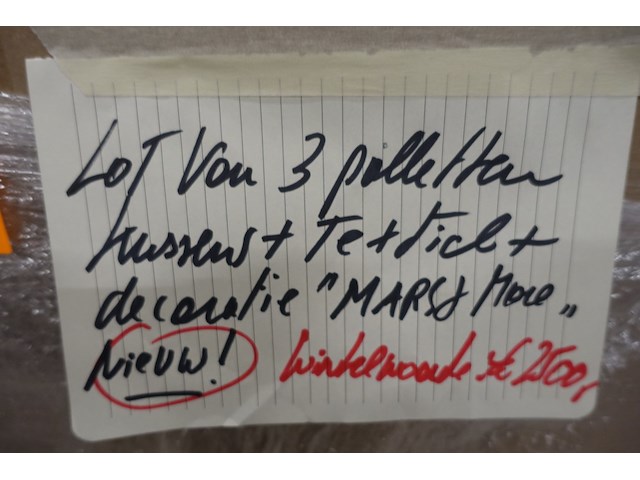 Lot Van 3 palletten
kussens + Textiel +
decoratie "MARS & More"
Nieuw! Winkelwaarde ± € 2500,-